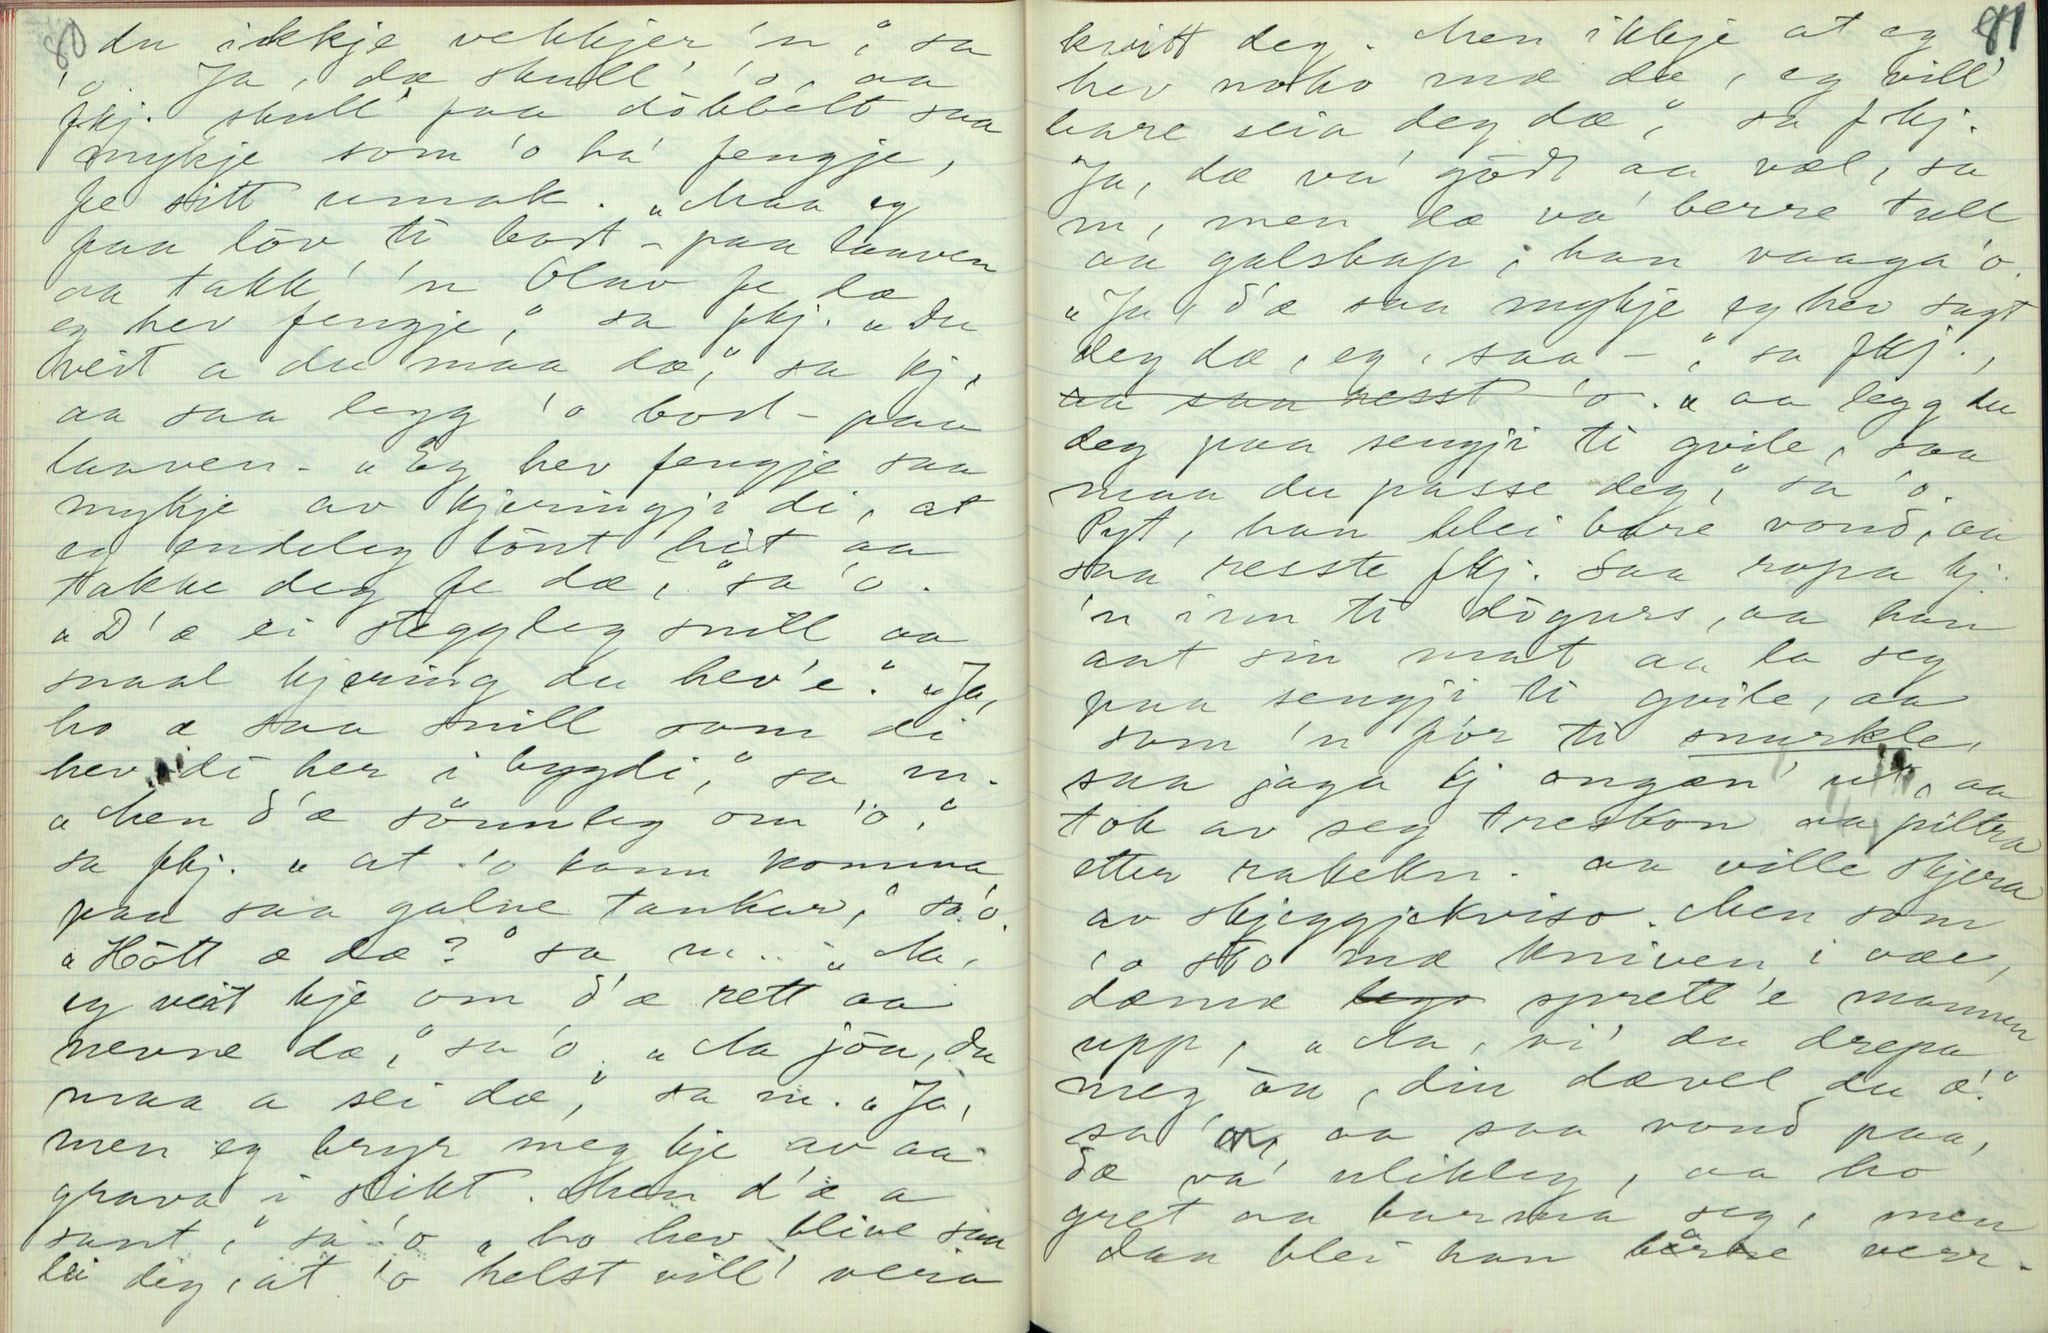 80
du ikkje vekkjer 'n," sa
'o. Ja, dæ skull' 'o, aa
fkj. skull' faa döbbelt saa
mykje som 'o ha' fengje,
fe sitt umak. „Maa eg
faa löv ti bort-paa laaven
aa takk' 'n Olav fe dæ
eg hev fengje," sa fkj. „Du
veit a du maa dæ," sa kj,
aa saa legg 'o bort-paa
laaven. „Eg hev fengje saa
mykje av kjeringji di, at
eg endeleg lönt hit aa
takke deg fe dæ," sa 'o.
„D'æ ei steggleg snill aa
snaal kjering du hev'e." „Ja,
ho æ saa snill som di
hev di her i bygdi," sa m.
„Men d'æ sönnleg om 'o,"
sa fkj. „at 'o kann komma
paa saa galne tankar," sa 'o.
„Hött æ dæ?" sa m.. „Ma,
eg veit kje om d'æ rett aa
nevne dæ," sa 'o. „Ma jöu, du
maa a sei dæ," sa m. „Ja,
men eg bryr meg kje av aa
grava i slikt. Men d'æ a
sant," sa 'o „ho hev blive saa
lei deg, at 'o helst vill' vera
81
kvitt deg. Men ikkje at eg
hev noko mæ dæ, eg vill'
bare seia deg dæ," sa fkj.
Ja, dæ va' godt aa væl, sa
m, men dæ va' berre tull
aa galskap, han vaaga 'o.
„Ja, d'æ saa mykje eg hev sagt
deg dæ, eg, saa –", sa fkj.,
aa saa resst 'o. „aa legg du
deg paa sengji ti gvile, saa
maa du passe deg," sa 'o.
Pyt, han blei bare vond, aa
saa resste fkj. Saa ropa kj.
'n inn ti dögurs, aa han
aat sin mat aa la seg
paa sengji ti gvile, aa
som 'n för ti snurkle,
saa jaga kj ongan' ut, aa
tok av seg treskon aa piltra
etter rakekn. aa ville skjera
av skjeggjekviso. Men som
'o sto mæ kniven i væe,
dæmæ sprett'e mannen
upp, „Ma, vi' du drepa
meg ön, din dævel du æ!"
sa 'n, aa saa vond paa,
dæ va' ulikleg, aa ho
gret aa barma seg, men
daa blei han bære verr.